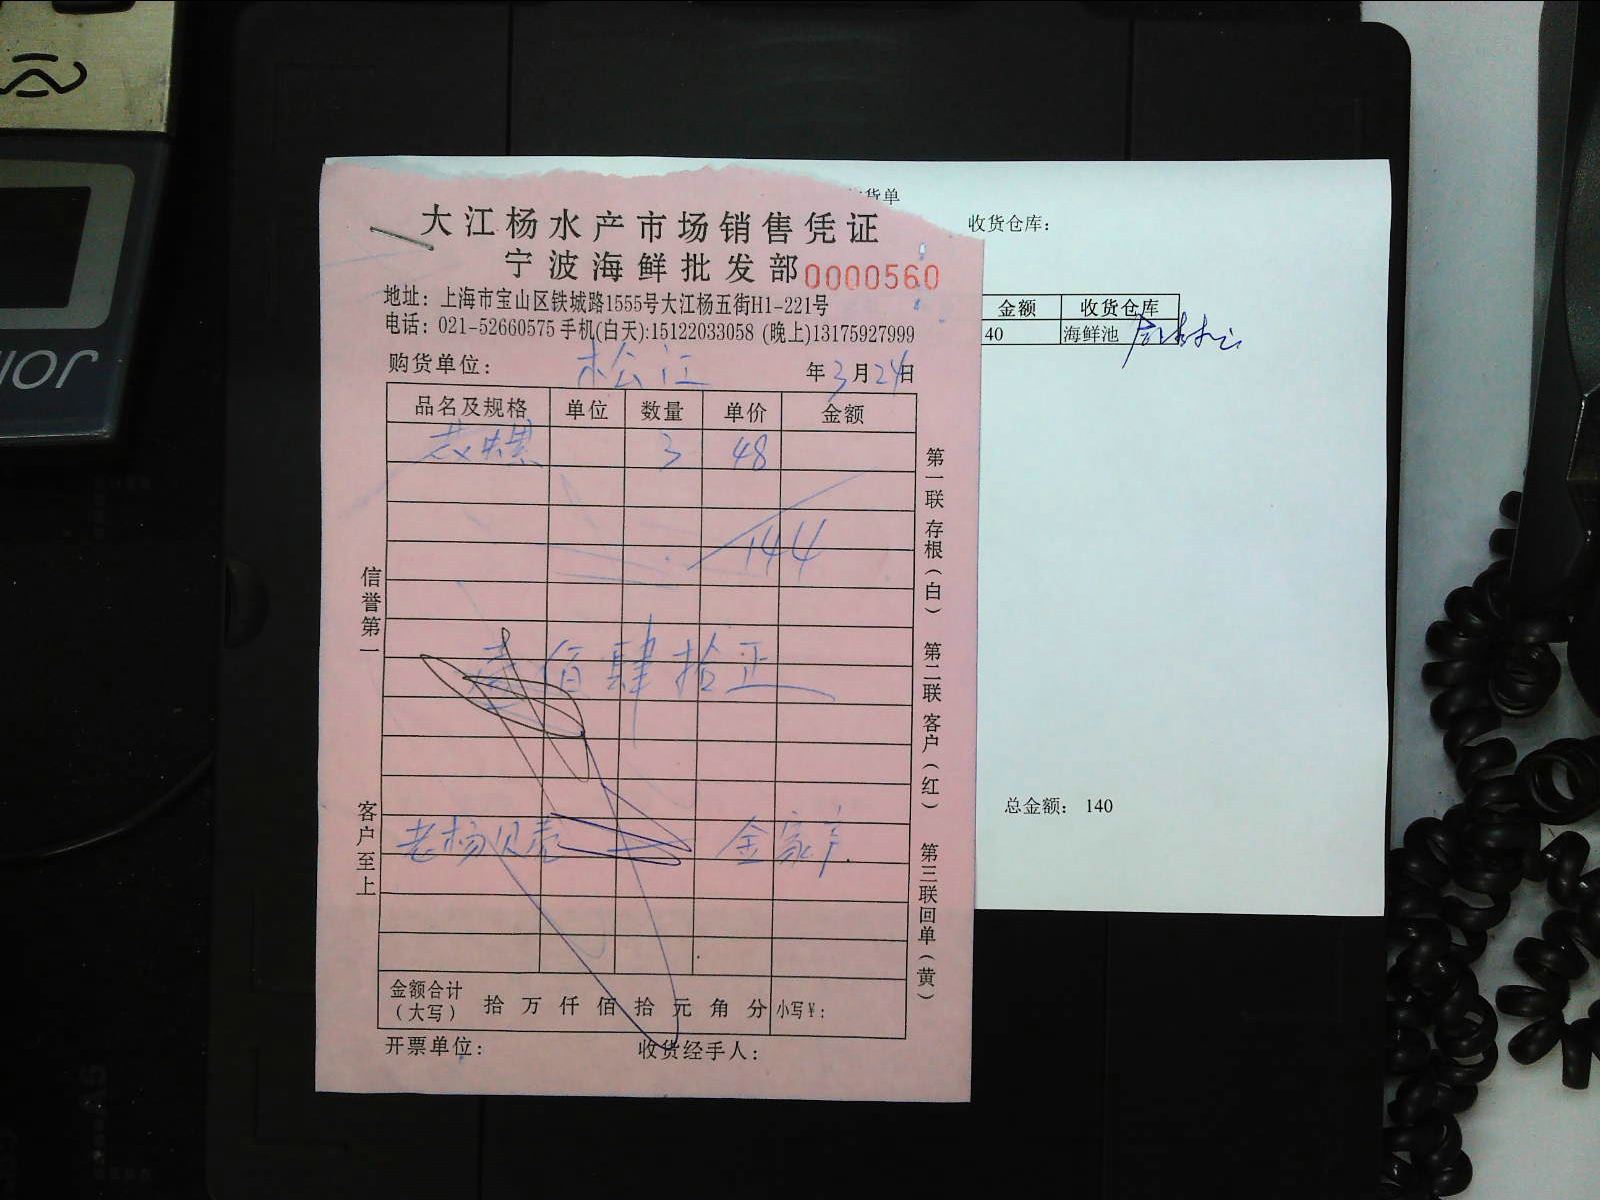 货单
大江杨水产市场销售凭证
收货仓库：
宁波海鲜批发部 0000560
地址：上海市宝山区铁城路1555号大江杨五街H1-221号
电话：021-52660575 手机(白天):15122033058 (晚上)13175927999
金额 收货仓库
40 海鲜池
购货单位： 松江 年3月24日
品名及规格 单位 数量 单价 金额
3 48
144
壹佰肆拾正
老杨贝壳
总金额： 140
金额合计（大写） 拾 万 仟 佰 拾 元 角 分 小写￥：
开票单位： 收货经手人：
信誉第一
客户至上
第一联存根（白）
第二联客户（红）
第三联回单（黄）